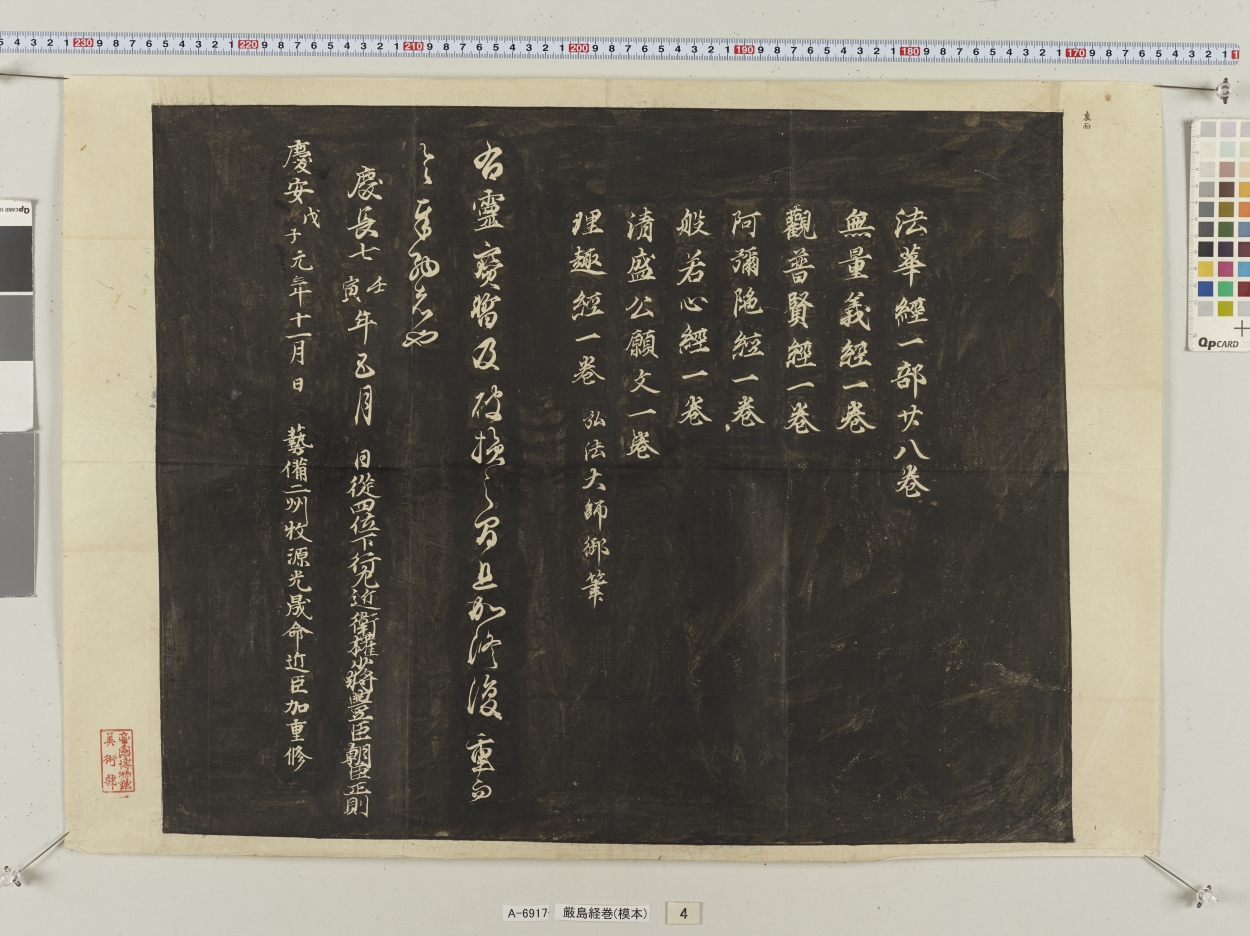 法華經一部廿八巻
無量義經一巻
觀普賢經一巻
阿彌陁經一巻
般若心經一巻
清盛公願文一巻
理趣經一巻 弘法大師御筆
右靈寳及破損之間且加修復重而
奉納者也
慶長七壬寅年五月 日從四位下行左近衛權少將豊臣朝臣正則
慶安戊子元年十一月 日 藝備二州牧源光晟命近臣加重修
230 220 210 200 190 180 170
QpCARD
A-6917 厳島経巻(模本) 4